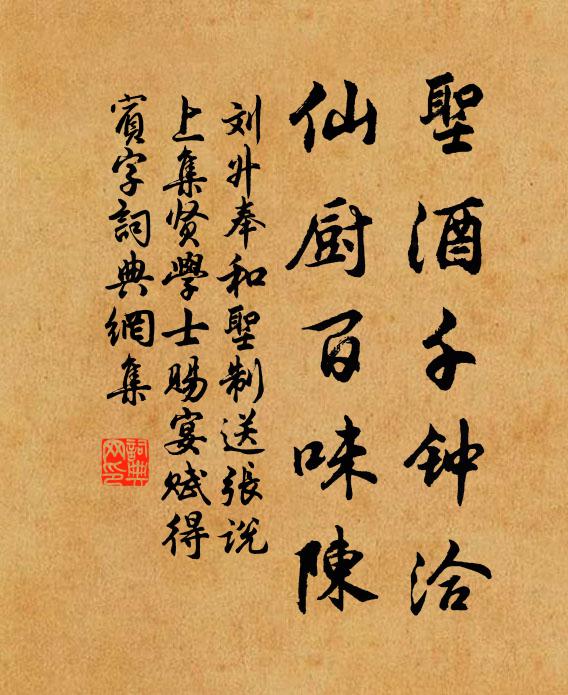 聖酒千钟洽
仙厨百味陳
刘升奉和聖制送張说
上集贤學士賜宴赋得
賓字詞典網集
詞典網印